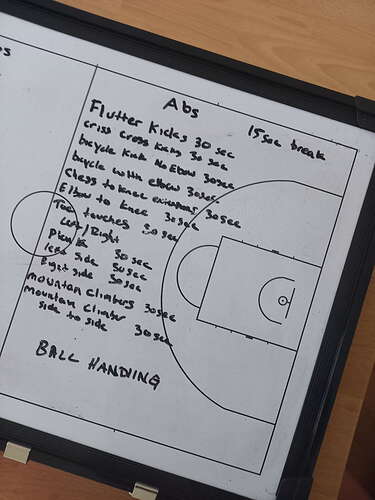 os
Abs
15 sec break
Flutter Kicks 30 sec
criss cross kicks 30 sec
bicycle kick No Elbow 30sec
bicycle with elbow 30sec
Chess to knee extensions 30sec
Elbow to knee 30sec
Toe touches 30sec
Left/Right
Plank 30sec
Left side 30sec
Right side 30sec
mountain climbers 30sec
mountain climber
side to side 30sec
BALL HANDLING